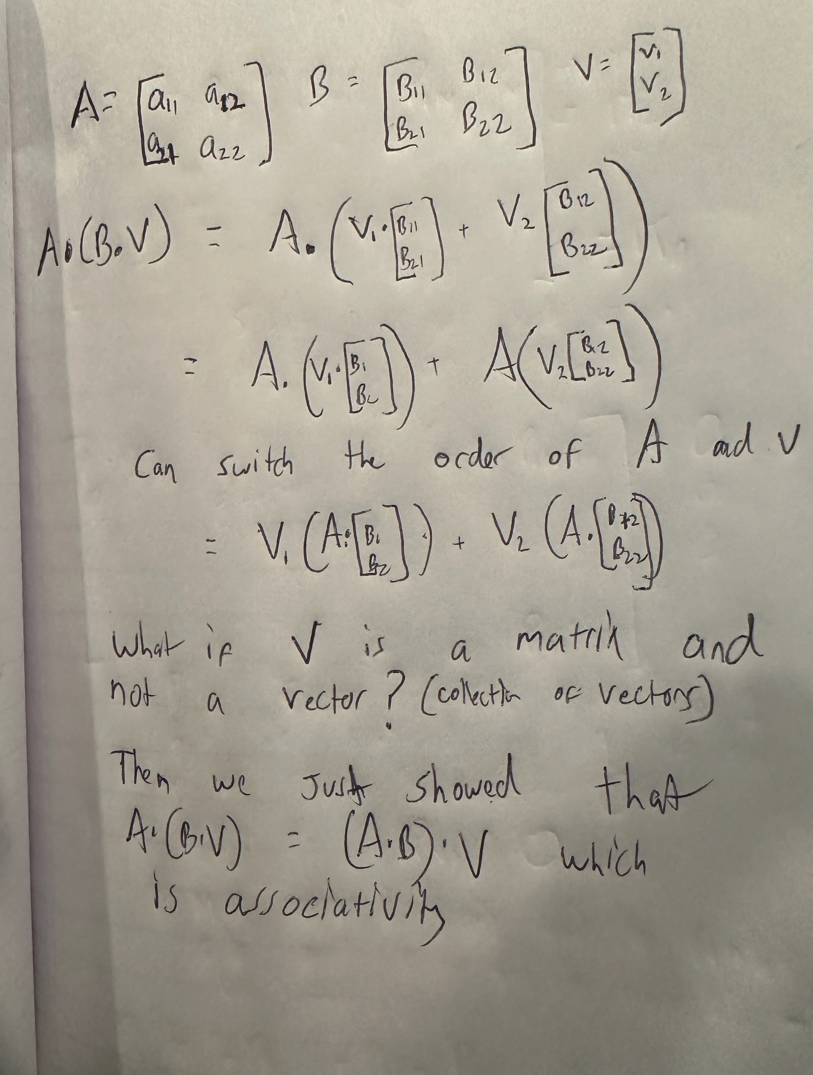 A = [a11 a12; a21 a22] B = [B11 B12; B21 B22] V = [V1; V2]
A•(B•V) = A•(V1•[B11; B21] + V2[B12; B22])
= A•(V1•[B1; B2]) + A(V2[B12; B22])
Can switch the order of A ad V
= V1(A•[B1; B2]) + V2(A•[B12; B22])
What if V is a matrix and
not a vector? (collection of vectors)
Then we just showed that
A•(B•V) = (A•B)•V which
is associativity